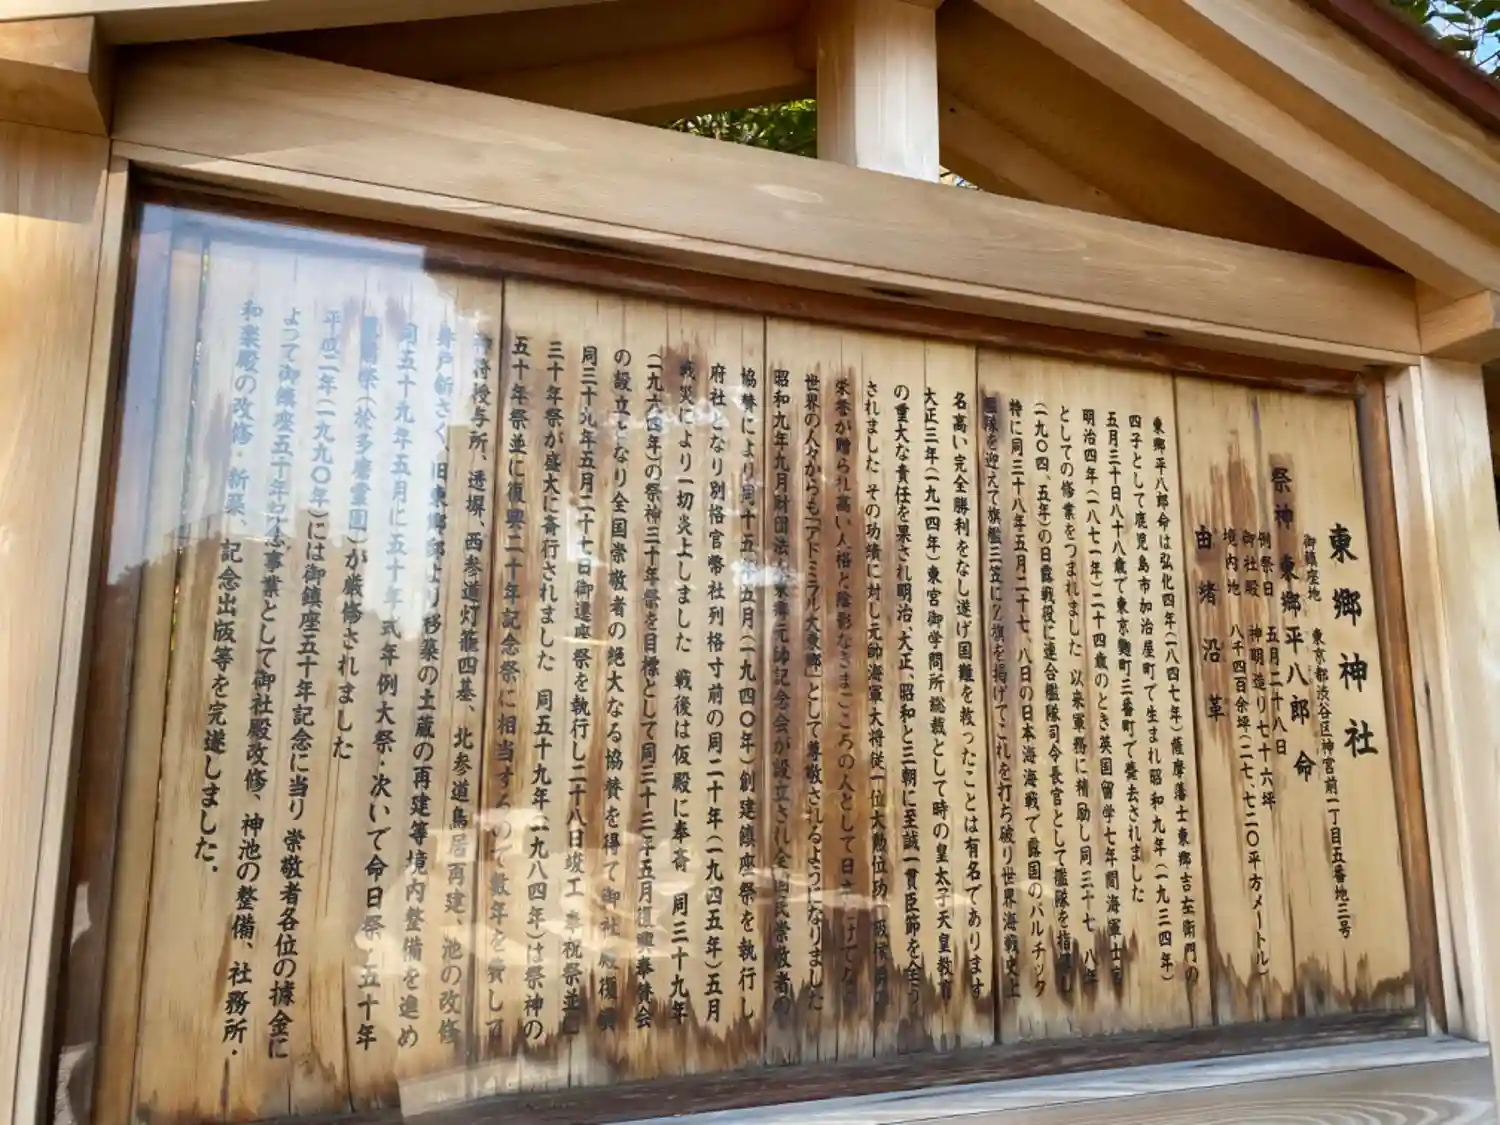 東郷神社
御鎮座地 東京都渋谷区神宮前一丁目五番地三号
祭神 東郷平八郎命
例祭日 五月二十八日
御社殿 神明造り七十六坪
境内地 八千四百余坪(二七、七二〇平方メートル)
由緒沿革
東郷平八郎命は弘化四年(一八四七年)薩摩藩士東郷吉左衛門の
四子として鹿児島市加治屋町で生まれ昭和九年(一九三四年)
五月三十日八十八歳で東京麹町三番町で薨去されました
明治四年(一八七一年)二十四歳のとき英国留学七年間海軍士官
としての修業をつまれました 以来軍務に精励し同三十七 八年
(一九〇四、五年)の日露戦役に連合艦隊司令長官として艦隊を指揮し
特に同三十八年五月二十七、八日の日本海海戦で露国のバルチック
艦隊を迎えて旗艦三笠にZ旗を掲げてこれを打ち破り世界海戦史上
名高い完全勝利をなし遂げ国難を救ったことは有名であります
大正三年(一九一四年)東宮御学問所総裁として時の皇太子天皇教育
の重大な責任を果され明治、大正、昭和と三朝に至誠一貫臣節を全う
されました その功績に対し元帥海軍大将従一位大勲位功一級侯爵の
栄誉が贈られ高い人格と陰影なきまごころの人として日本
世界の人々からも「アドミラル大東郷」として尊敬されるようになりました
昭和九年九月財団法人東郷元帥記念会が設立され全国民崇敬者の
協賛により同十五年五月(一九四〇年)創建鎮座祭を執行し
府社となり別格官幣社列格寸前の同二十年(一九四五年)五月
戦災により一切炎上しました 戦後は仮殿に奉斎 同三十九年
(一九六四年)の祭神三十年祭を目標として同三十三年五月復興奉賛会
の設立となり全国崇敬者の絶大なる協賛を得て御社殿復興
同三十九年五月二十七日御遷座祭を執行し二十八日竣工奉祝祭並に
三十年祭が盛大に斎行されました 同五十九年(一九八四年)は祭神の
五十年祭並に復興二十年記念祭に相当するので数年を費して
神符授与所、透塀、西参道灯籠四基、北参道鳥居再建、池の改修
井戸新さく、旧東郷邸より移築の土蔵の再建等境内整備を進め
同五十九年五月に五十年式年例大祭・次いで命日祭と五十年
墓前祭(於多磨霊園)が厳修されました
平成二年(一九九〇年)には御鎮座五十年記念に当り崇敬者各位の據金に
よって御鎮座五十年記念事業として御社殿改修、神池の整備、社務所・
和楽殿の改修・新築、記念出版等を完遂しました.